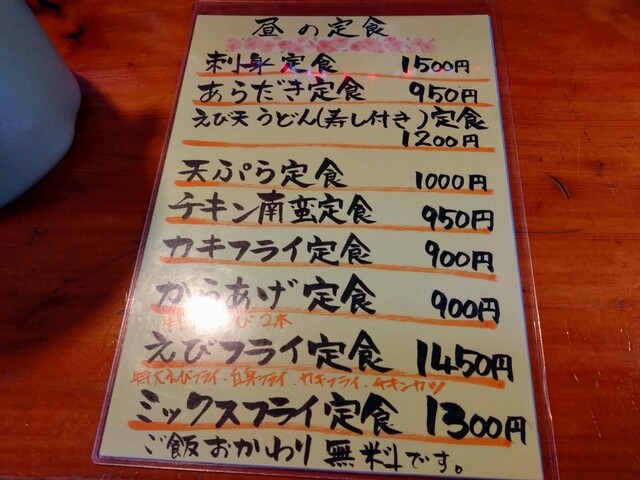 昼の定食
刺身定食 1500円
あらだき定食 950円
えび天うどん(寿し付き)定食
1200円
天ぷら定食 1000円
チキン南蛮定食 950円
カキフライ定食 900円
からあげ定食 900円
び2本
えびフライ定食 1450円
特大えびフライ・白身フライ・カキフライ・チキンカツ
ミックスフライ定食 1300円
ご飯おかわり無料です。